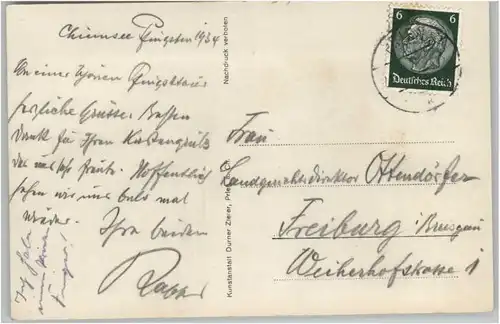 Chiemsee Pfingsten 1934
Von einer schönen Pfingsttour
herzliche Grüsse. Besten
Dank für Ihren Kartengruß
der uns sehr freute. Hoffentlich
sehen wir uns bald mal
wieder.
Ihre beiden
Nachdruck verboten
Kunstanstalt Durner Zteier, Prien
6 6
Deutsches Reich
Frau
Landgerichtsdirektor Ottendörfer
Freiburg i Breisgau
Weiherhofstrasse 1